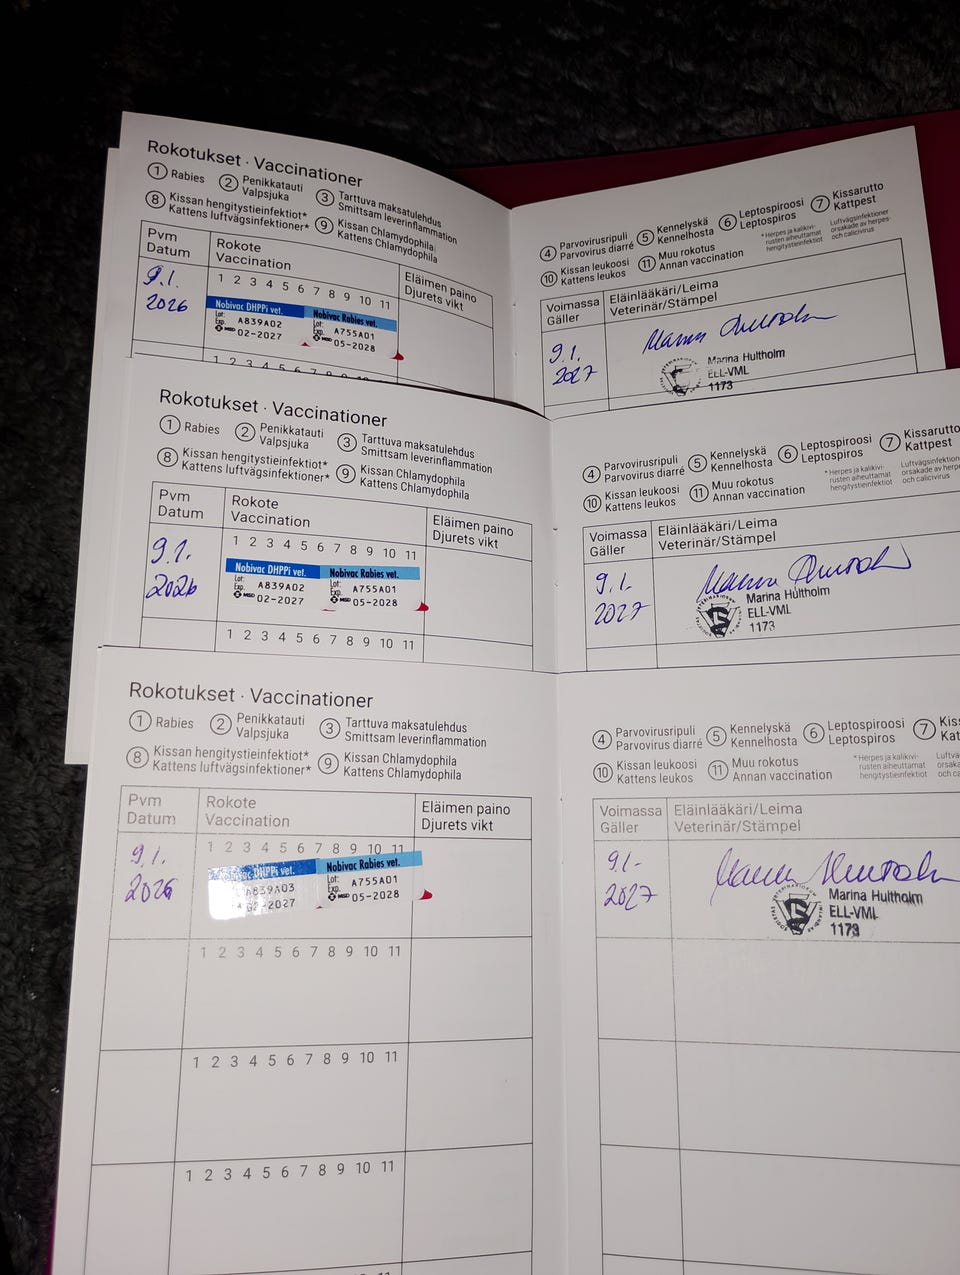 Rokotukset · Vaccinationer
1 Rabies 2 Penikkatauti Valpsjuka 3 Tarttuva maksatulehdus Smittsam leverinflammation
8 Kissan hengitystieinfektiot* Kattens luftvägsinfektioner* 9 Kissan Chlamydophila Kattens Chlamydophila
Pvm Datum
Rokote Vaccination
Eläimen paino Djurets vikt
1 2 3 4 5 6 7 8 9 10 11
9.1. 2026
Nobivac DHPPi vet.
Lot: A839A02
Exp. MSD 02-2027
Nobivac Rabies vet.
Lot: A755A01
Exp. MSD 05-2028
4 Parvovirusripuli Parvovirus diarré 5 Kennelyskä Kennelhosta 6 Leptospiroosi Leptospiros 7 Kissarutto Kattpest
10 Kissan leukoosi Kattens leukos 11 Muu rokotus Annan vaccination
* Herpes ja kalikivi-
rusten aiheuttamat
hengitystieinfektiot
Luftvägsinfektioner
orsakade av herpes-
och calicivirus
Voimassa Gäller
Eläinlääkäri/Leima
Veterinär/Stämpel
9.1. 2027
Marina Hultholm
ELL-VML
1173
Rokotukset · Vaccinationer
1 Rabies 2 Penikkatauti Valpsjuka 3 Tarttuva maksatulehdus Smittsam leverinflammation
8 Kissan hengitystieinfektiot* Kattens luftvägsinfektioner* 9 Kissan Chlamydophila Kattens Chlamydophila
Pvm Datum
Rokote Vaccination
Eläimen paino Djurets vikt
1 2 3 4 5 6 7 8 9 10 11
9.1. 2026
Nobivac DHPPi vet.
Lot: A839A02
Exp. MSD 02-2027
Nobivac Rabies vet.
Lot: A755A01
Exp. MSD 05-2028
1 2 3 4 5 6 7 8 9 10 11
4 Parvovirusripuli Parvovirus diarré 5 Kennelyskä Kennelhosta 6 Leptospiroosi Leptospiros 7 Kissarutto Kattpest
10 Kissan leukoosi Kattens leukos 11 Muu rokotus Annan vaccination
* Herpes ja kalikivi-
rusten aiheuttamat
hengitystieinfektiot
Voimassa Gäller
Eläinlääkäri/Leima
Veterinär/Stämpel
9.1. 2027
Marina Hultholm
ELL-VML
1173
Rokotukset · Vaccinationer
1 Rabies 2 Penikkatauti Valpsjuka 3 Tarttuva maksatulehdus Smittsam leverinflammation
8 Kissan hengitystieinfektiot* Kattens luftvägsinfektioner* 9 Kissan Chlamydophila Kattens Chlamydophila
Pvm Datum
Rokote Vaccination
Eläimen paino Djurets vikt
1 2 3 4 5 6 7 8 9 10 11
9.1. 2026
DHPPi vet.
A839A03
02-2027
Nobivac Rabies vet.
Lot: A755A01
Exp. MSD 05-2028
1 2 3 4 5 6 7 8 9 10 11
1 2 3 4 5 6 7 8 9 10 11
1 2 3 4 5 6 7 8 9 10 11
4 Parvovirusripuli Parvovirus diarré 5 Kennelyskä Kennelhosta 6 Leptospiroosi Leptospiros 7
10 Kissan leukoosi Kattens leukos 11 Muu rokotus Annan vaccination
* Herpes ja kalikivi-
rusten aiheuttamat
hengitystieinfektiot
Voimassa Gäller
Eläinlääkäri/Leima
Veterinär/Stämpel
9.1. 2027
Marina Hultholm
ELL-VML
1173